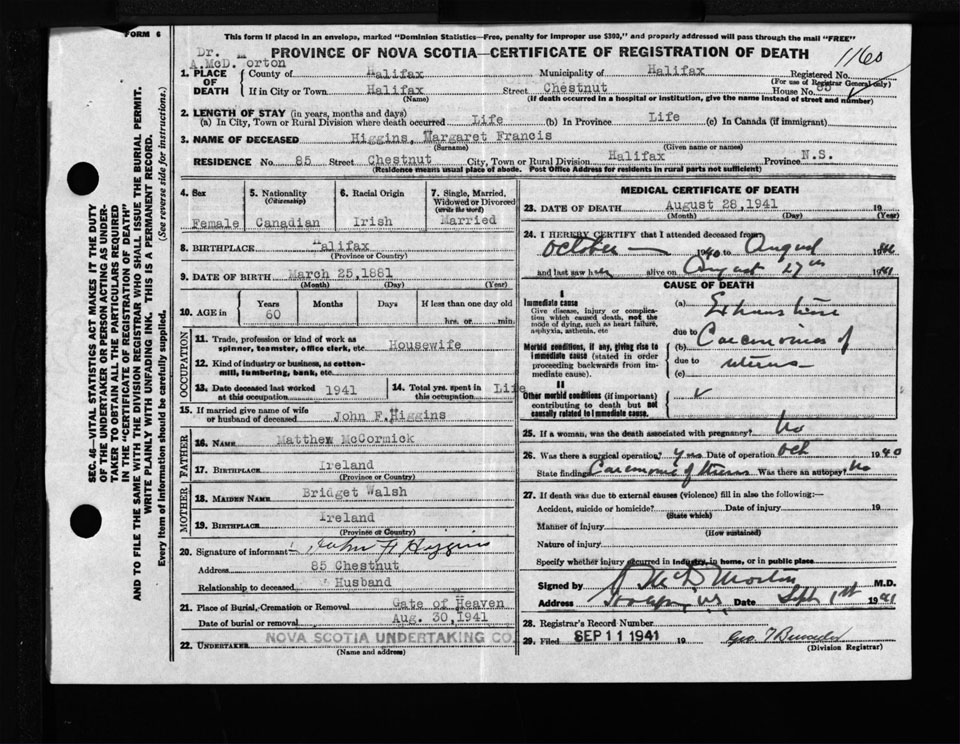 FORM 6
This form if placed in an envelope, marked "Dominion Statistics—Free, penalty for improper use $300," and properly addressed will pass through the mail "FREE"
Dr. M
A.McD. orton
PROVINCE OF NOVA SCOTIA—CERTIFICATE OF REGISTRATION OF DEATH
1160
1. PLACE OF DEATH
County of Halifax Municipality of Halifax Registered No.
(For use of Registrar General only)
If in City or Town Halifax Street Chestnut House No. 85
(Name) (If death occurred in a hospital or institution, give the name instead of street and number)
2. LENGTH OF STAY (in years, months and days)
(a) In City, Town or Rural Division where death occurred Life (b) In Province Life (c) In Canada (if immigrant)
3. NAME OF DECEASED Higgins, Margaret Francis
(Surname) (Given name or names)
RESIDENCE No. 85 Street Chestnut City, Town or Rural Division Halifax Province N.S.
(Residence means usual place of abode. Post Office Address for residents in rural parts not sufficient)
4. Sex Female
5. Nationality (Citizenship) Canadian
6. Racial Origin Irish
7. Single, Married, Widowed or Divorced (write the word) Married
8. BIRTHPLACE Halifax
(Province or Country)
9. DATE OF BIRTH March 25,1881
(Month) (Day) (Year)
10. AGE in Years Months Days If less than one day old
60 hrs. or min.
OCCUPATION
11. Trade, profession or kind of work as spinner, teamster, office clerk, etc. Housewife
12. Kind of industry or business, as cotton-mill, lumbering, bank, etc.
13. Date deceased last worked at this occupation 1941
14. Total yrs. spent in this occupation Life
15. If married give name of wife or husband of deceased John F.Higgins
FATHER
16. NAME Matthew McCormick
17. BIRTHPLACE Ireland
(Province or Country)
MOTHER
18. MAIDEN NAME Bridget Walsh
19. BIRTHPLACE Ireland
(Province or Country)
20. Signature of informant John F Higgins
Address 85 Chestnut
Relationship to deceased Husband
21. Place of Burial, Cremation or Removal Gate of Heaven
Date of burial or removal Aug. 30,1941
22. UNDERTAKER NOVA SCOTIA UNDERTAKING CO.
(Name and address)
MEDICAL CERTIFICATE OF DEATH
23. DATE OF DEATH August 28,1941 19
(Month) (Day) (Year)
24. I HEREBY CERTIFY that I attended deceased from
October 1940 to August 19
and last saw her alive on August 27th 1941
CAUSE OF DEATH
I
Immediate cause
Give disease, injury or complication which caused death, not the mode of dying, such as heart failure, asphyxia, asthenia, etc
(a) Exhaustion
due to
Morbid conditions, if any, giving rise to immediate cause (stated in order proceeding backwards from immediate cause).
(b) Carcinoma of
due to uterus
(c)
II
Other morbid conditions (if important) contributing to death but not causally related to immediate cause.
25. If a woman, was the death associated with pregnancy? No
26. Was there a surgical operation? yes Date of operation Oct 1940
State findings Carcinoma of Uterus Was there an autopsy? No
27. If death was due to external causes (violence) fill in also the following:—
Accident, suicide or homicide? Date of injury 19
(State which)
Manner of injury
(How sustained)
Nature of injury
Specify whether injury occurred in industry, in home, or in public place
Signed by A McD Morton M.D.
Address Date Sept 1st 1941
28. Registrar's Record Number
29. Filed SEP 11 1941 19 Geo T
(Division Registrar)
SEC. 46—VITAL STATISTICS ACT MAKES IT THE DUTY
OF THE UNDERTAKER OR PERSON ACTING AS UNDER-
TAKER TO OBTAIN ALL THE PARTICULARS REQUIRED
IN THE "CERTIFICATE OF REGISTRATION OF DEATH"
AND TO FILE THE SAME WITH THE DIVISION REGISTRAR WHO SHALL ISSUE THE BURIAL PERMIT.
WRITE PLAINLY WITH UNFADING INK. THIS IS A PERMANENT RECORD.
Every item of Information should be carefully supplied. (See reverse side for instructions.)